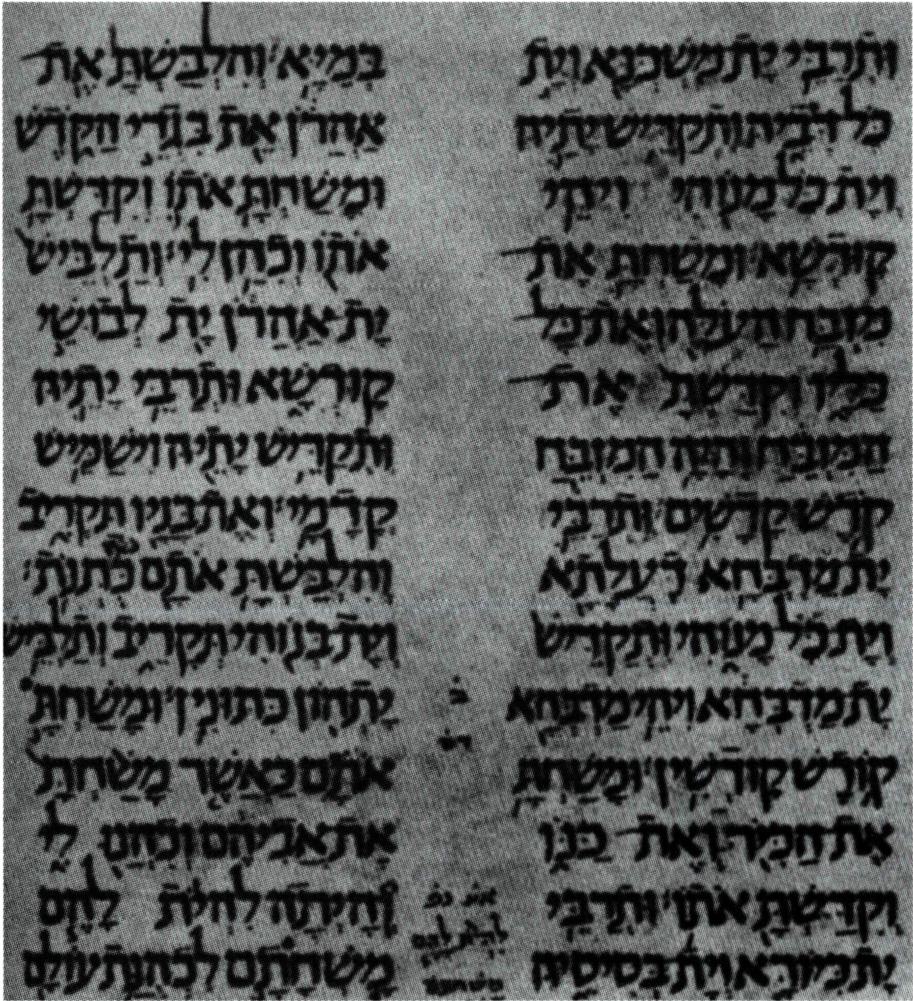 ותרבי ית משכנא וית
כל דביה ותקדיש יתיה
וית כל מנוהי ויהי
קודשא ומשחת את
מזבח העלה ואת כל
כליו וקדשת את
המזבח והיה המזבח
קדש קדשים ותרבי
ית מדבחא דעלתא
וית כל מנוהי ותקדיש
ית מדבחא ויהי מדבחא
קודש קודשין ומשחת
את הכיר ואת כנו
וקדשת אתו ותרבי
ית כיורא וית בסיסיה
במיא והלבשת את
אהרן את בגדי הקדש
ומשחת אתו וקדשת
אתו וכהן לי ותלביש
ית אהרן ית לבושי
קודשא ותרבי יתיה
ותקדיש יתיה וישמיש
קדמי ואת בניו תקריב
והלבשת אתם כתנת
וית בנוהי תקריב ותלביש
יתהון כתונין ומשחת
אתם כאשר משחת
את אביהם וכהנו לי
והיתה להית להם
משחתם לכהנת עולם